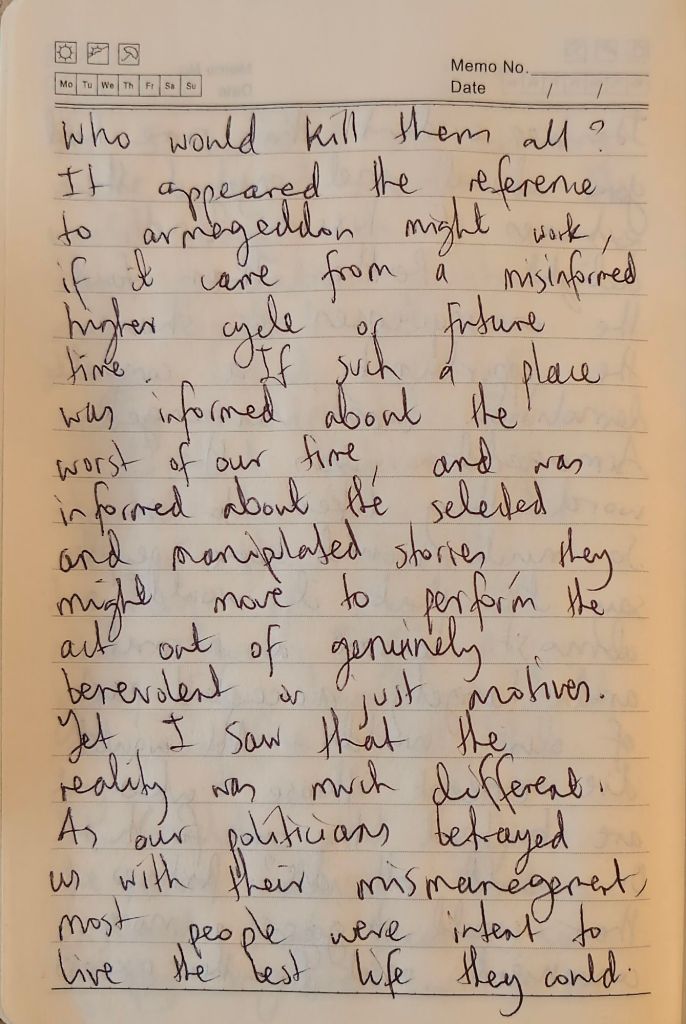 Memo No.
Mo Tu We Th Fr Sa Su
Date / /
Who would kill them all?
It appeared the reference
to armageddon might work,
if it came from a misinformed
higher cycle or future
time. If such a place
was informed about the
worst of our time, and was
informed about the selected
and maniplated stories, they
might move to perform the
act out of genuinely
benevolent or just motives.
Yet I saw that the
reality was much different.
As our politicians betrayed
us with their mismanegement,
most people were intent to
live the best life they could.